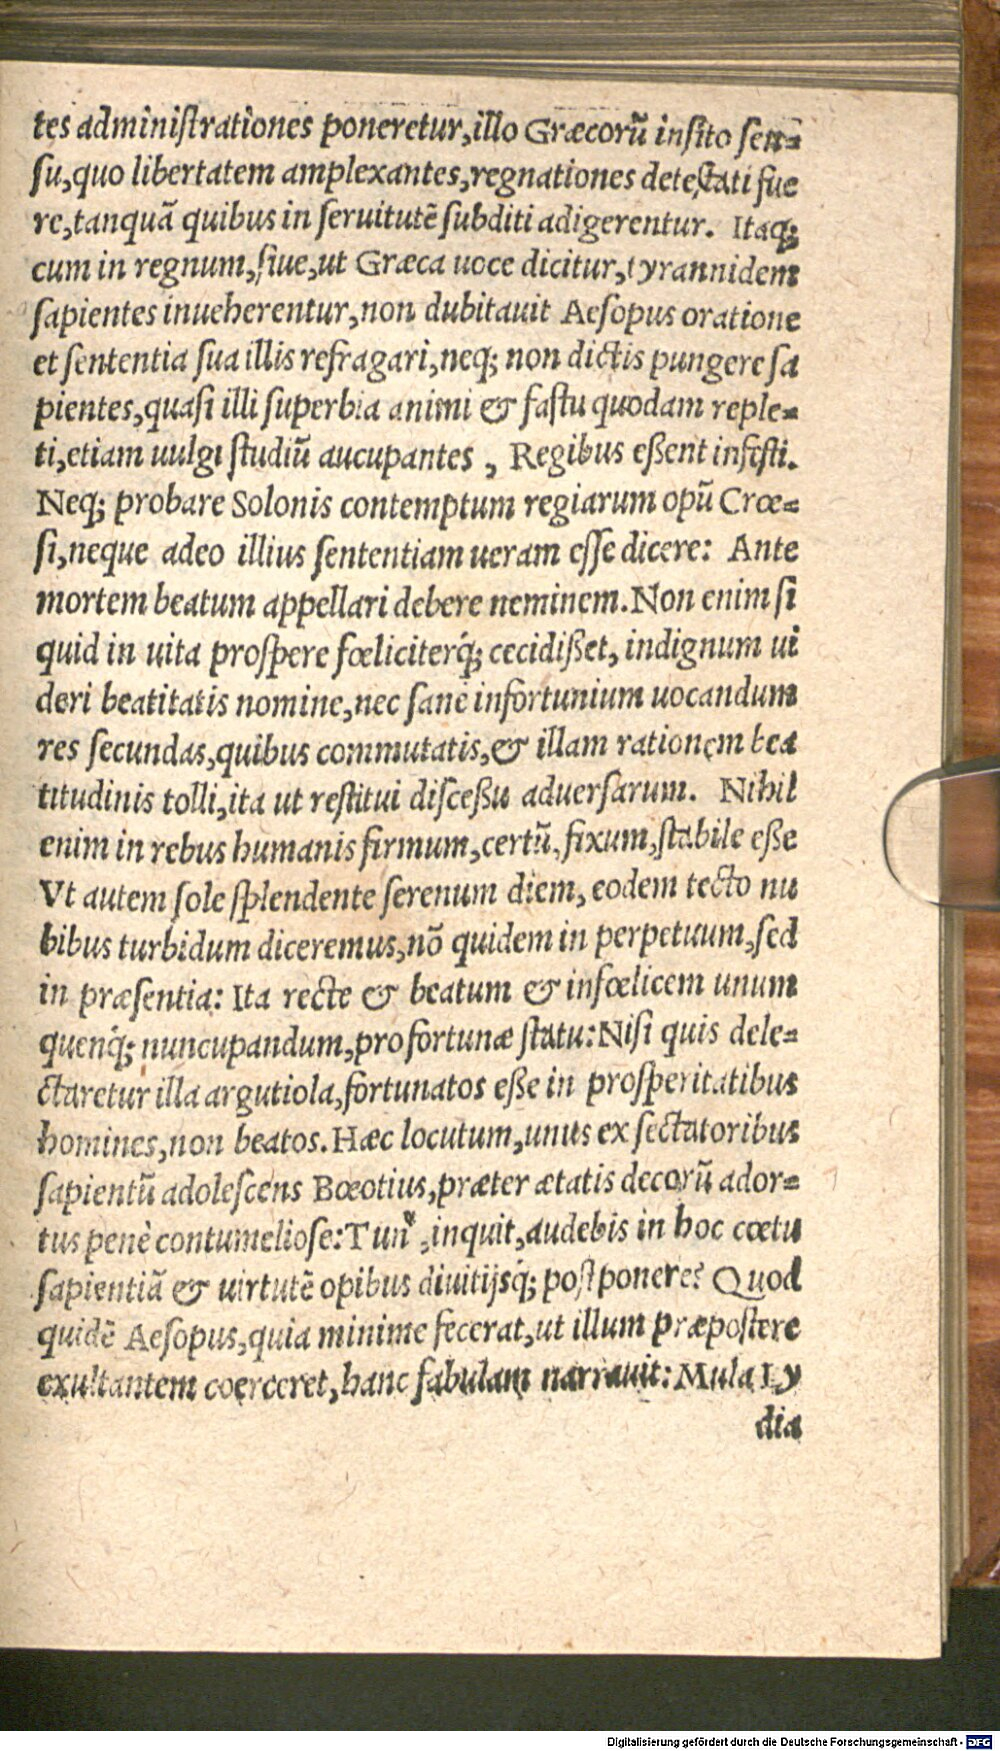 tes adminiſtrationes poneretur,illo Græcorũ inſito ſen=
ſu,quo libertatem amplexantes,regnationes deteſtati fue
re,tanquã quibus in ſeruitutẽ ſubditi adigerentur. Itaq;
cum in regnum,ſiue,ut Græca uoce dicitur,tyrannidem
ſapientes inueherentur,non dubitauit Aeſopus oratione
et ſententia ſua illis refragari,neq; non dictis pungere ſa
pientes,quaſi illi ſuperbia animi & faſtu quodam reple=
ti,etiam uulgi ſtudiũ aucupantes , Regibus eßent infeſti.
Neq; probare Solonis contemptum regiarum opũ Crœ=
ſi,neque adeo illius ſententiam ueram eſſe dicere: Ante
mortem beatum appellari debere neminem.Non enim ſi
quid in uita proſpere fœliciterq́; cecidißet, indignum ui
deri beatitatis nomine,nec ſanè infortunium uocandum
res ſecundas,quibus commutatis,& illam rationem bea
titudinis tolli,ita ut reſtitui diſceßu aduerſarum. Nihil
enim in rebus humanis firmum,certũ,fixum,ſtabile eße
Vt autem ſole ſplendente ſerenum diem, eodem tecto nu
bibus turbidum diceremus,nõ quidem in perpetuum,ſed
in præſentia: Ita recte & beatum & infœlicem unum
quenq́; nuncupandum,pro fortunæ ſtatu:Niſi quis dele=
ctaretur illa argutiola,fortunatos eße in proſperitatibus
homines,non beatos.Hæc locutum,unus ex ſectatoribus
ſapientũ adoleſcens Bœotius,præter ætatis decorũ ador=
tus penè contumelioſe:Tun' ,inquit,audebis in hoc cœtu
ſapientiã & uirtutẽ opibus diuitijsq́; poſtponere? Quod
quidẽ Aeſopus,quia minime fecerat,ut illum præpoſtere
exultantem coerceret,hanc fabulam narrauit:Mula Ly
dia
Digitalisierung gefördert durch die Deutsche Forschungsgemeinschaft - DFG